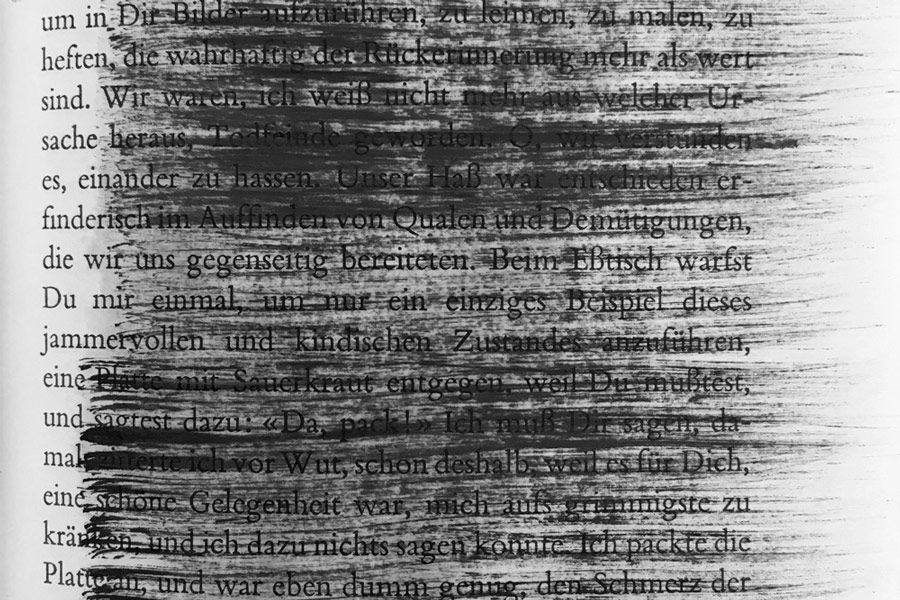 um in Dir Bilder aufzurühren, zu leimen, zu malen, zu
heften, die wahrhaftig der Rückerinnerung mehr als wert
sind. Wir waren, ich weiß nicht mehr aus welcher Ur-
sache heraus, Todfeinde geworden. O, wir verstunden
es, einander zu hassen. Unser Haß war entschieden er-
finderisch im Auffinden von Qualen und Demütigungen,
die wir uns gegenseitig bereiteten. Beim Eßtisch warfst
Du mir einmal, um nur ein einziges Beispiel dieses
jammervollen und kindischen Zustandes anzuführen,
eine Platte mit Sauerkraut entgegen, weil Du mußtest,
und sagtest dazu: «Da, pack!» Ich muß Dir sagen, da-
mals zitterte ich vor Wut, schon deshalb, weil es für Dich,
eine schöne Gelegenheit war, mich aufs grimmigste zu
kränken, und ich dazu nichts sagen konnte. Ich packte die
Platte an, und war eben dumm genug, den Schmerz der